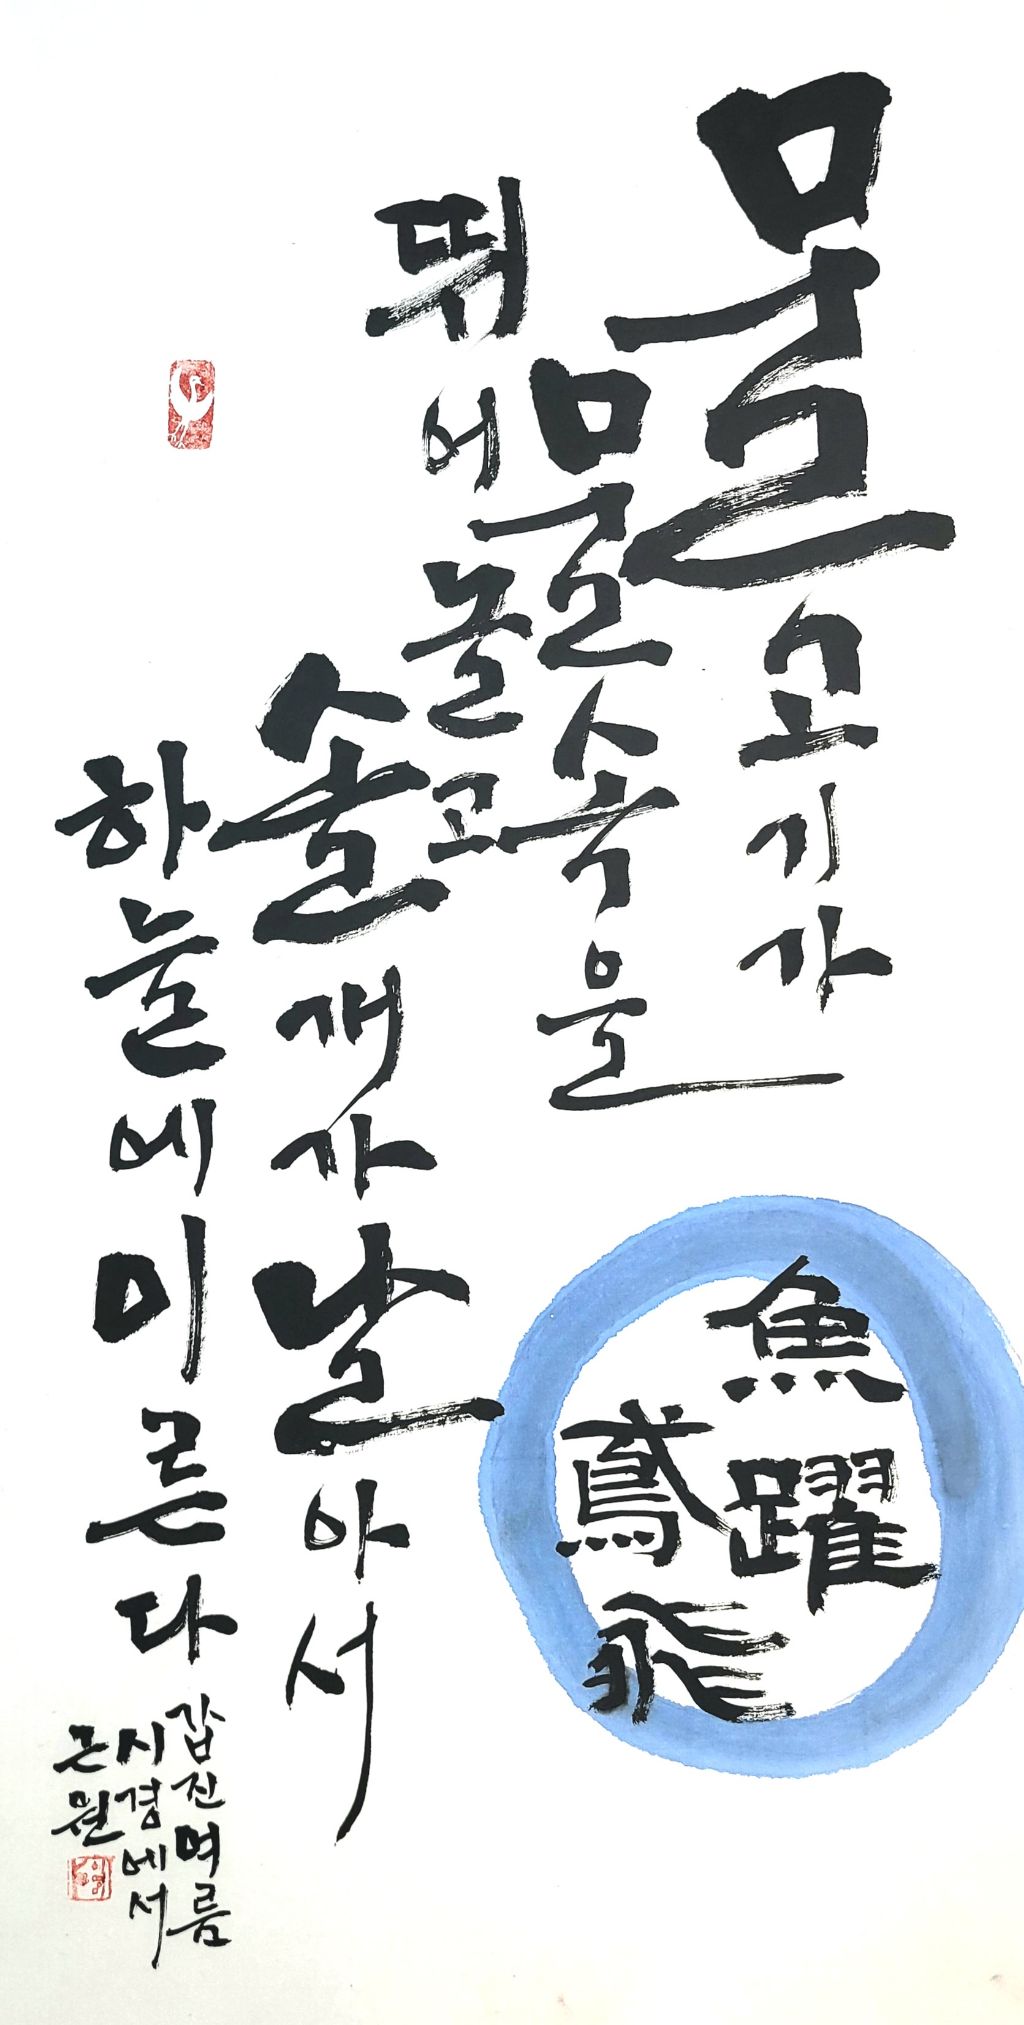 물고기가
물속을
뛰어놀고
솔개가 날아서
하늘에 이른다
魚躍
鳶飛
갑진여름
시경에서
근원